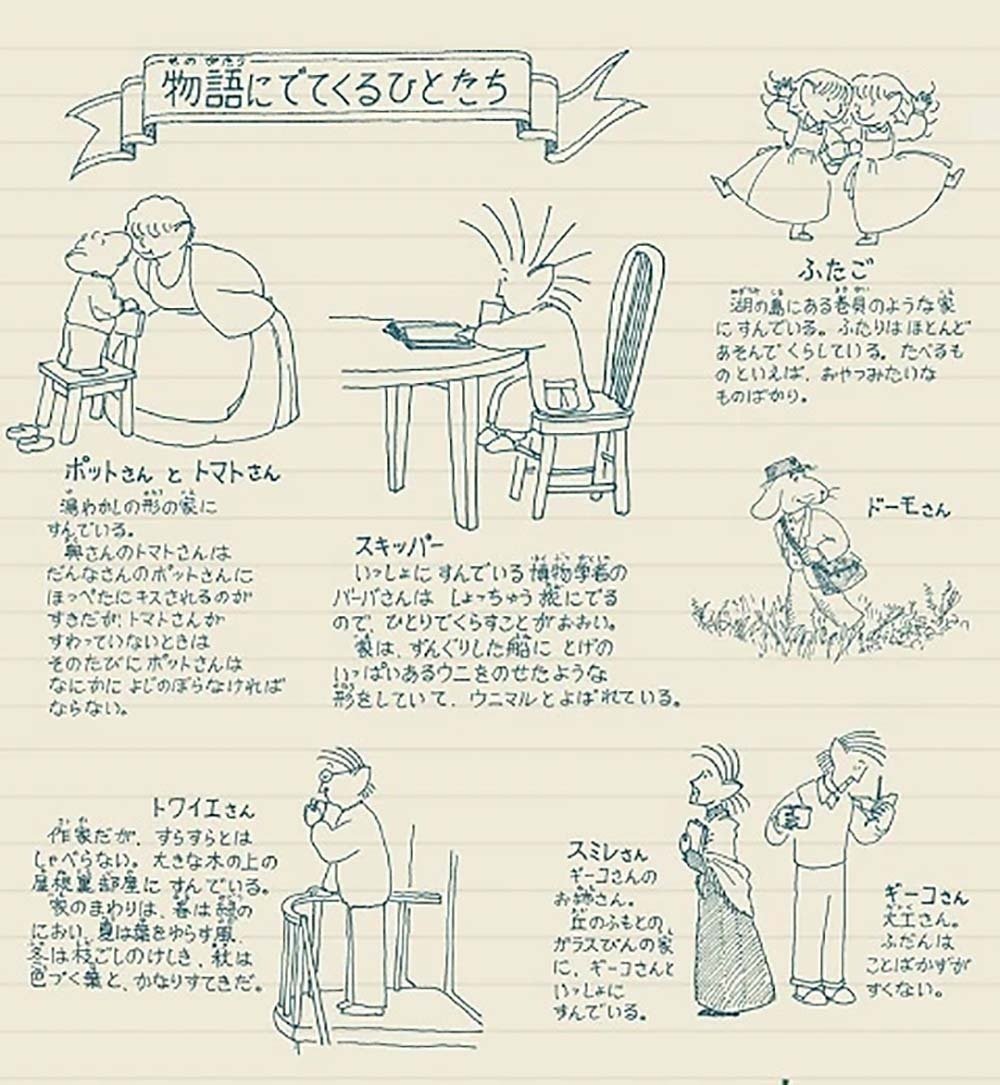 物語にでてくるひとたち
ものがたり
ふたご
湖の島にある巻貝のような家
にすんでいる。ふたりはほとんど
あそんでくらしている。たべるも
のといえば、おやつみたいな
ものばかり。
ポットさん と トマトさん
湯わかしの形の家に
すんでいる。
奥さんのトマトさんは
だんなさんのポットさんに
ほっぺたにキスされるのが
すきだが、トマトさんが
すわっていないときは
そのたびにポットさんは
なにかによじのぼらなければ
ならない。
スキッパー
いっしょにすんでいる博物学者の
バーバさんは しょっちゅう旅にでる
ので、ひとりでくらすことがおおい。
家は、ずんぐりした船に とげの
いっぱいあるウニをのせたような
形をしていて、ウニマルとよばれている。
ドーモさん
トワイエさん
作家だが、すらすらとは
しゃべらない。大きな木の上の
屋根裏部屋にすんでいる。
家のまわりは、春は緑の
におい、夏は葉をゆらす風、
冬は枝ごしのけしき、秋は
色づく葉と、かなりすてきだ。
スミレさん
ギーコさんの
お姉さん。
丘のふもとの、
ガラスびんの家
に、ギーコさんと
いっしょに
すんでいる。
ギーコさん
大工さん。
ふだんは
ことばかずが
すくない。